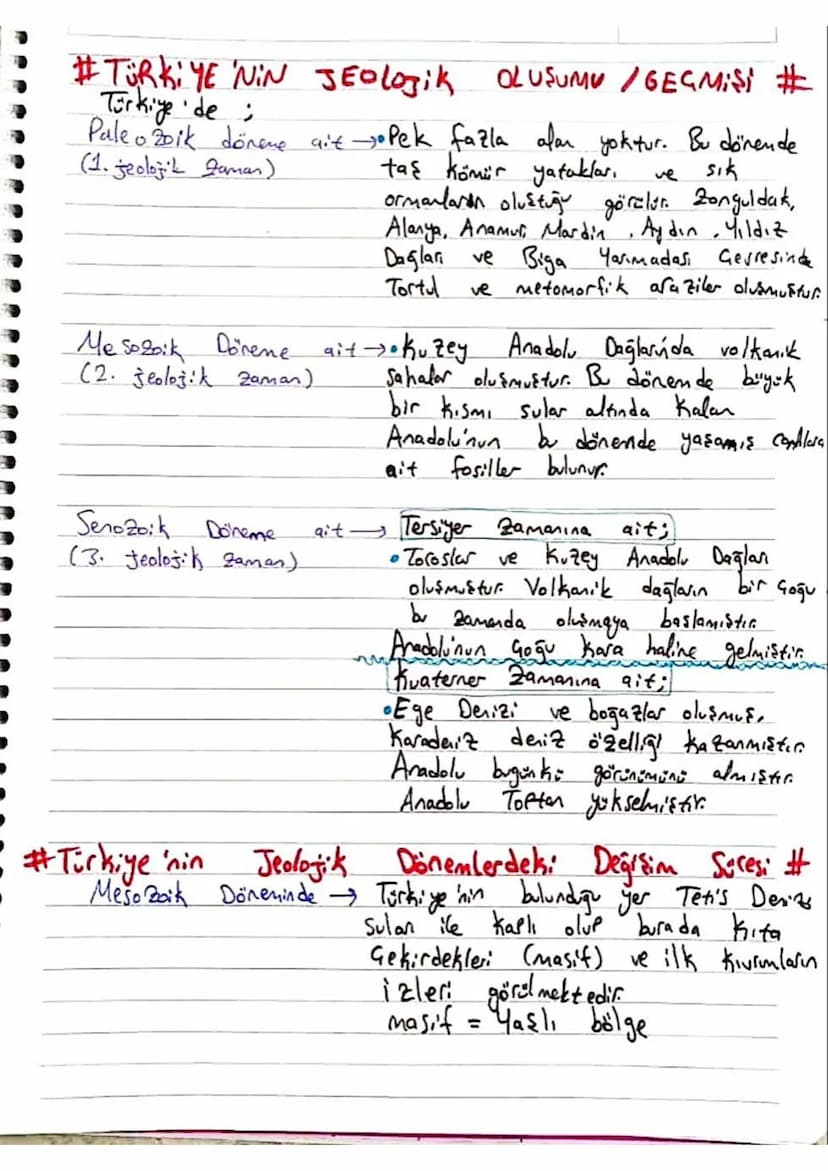 # TÜRKİYE'NİN JEOLOJİK OLUŞUMU / GEÇMİŞİ #
Türkiye'de ;
Paleozoik döneme ait → • Pek fazla alan yoktur. Bu dönemde
(1. jeolojik zaman) taş kömür yatakları ve sık
ormanların oluştuğu görülür. Zonguldak,
Alanya, Anamur, Mardin, Aydın, Yıldız
Dağları ve Biga Yarımadası Çevresinde
Tortul ve metomorfik araziler oluşmuştur.
Mesozoik Döneme ait → • Kuzey Anadolu Dağlarında volkanik
(2. jeolojik zaman) sahalar oluşmuştur. Bu dönemde büyük
bir kısmı sular altında kalan
Anadolu'nun bu dönemde yaşamış canlılara
ait fosiller bulunur.
Senozoik Döneme ait → Tersiyer zamanına ait;
(3. jeolojik zaman) • Toroslar ve Kuzey Anadolu Dağları
oluşmuştur. Volkanik dağların bir çoğu
bu zamanda oluşmaya başlamıştır.
Anadolu'nun çoğu kara haline gelmiştir.
Kuaterner zamanına ait;
• Ege Denizi ve boğazlar oluşmuş,
Karadeniz deniz özelliği kazanmıştır.
Anadolu bugünkü görünümünü almıştır.
Anadolu Toptan yükselmiştir.
# Türkiye'nin Jeolojik Dönemlerdeki Değişim Süresi #
Mesozoik Döneminde → Türkiye'nin bulunduğu yer Tetis Denizi
Suları ile kaplı olup burada kıta
Çekirdekleri (masif) ve ilk kıvrımların
izleri görülmektedir.
masif = Yaşlı bölge